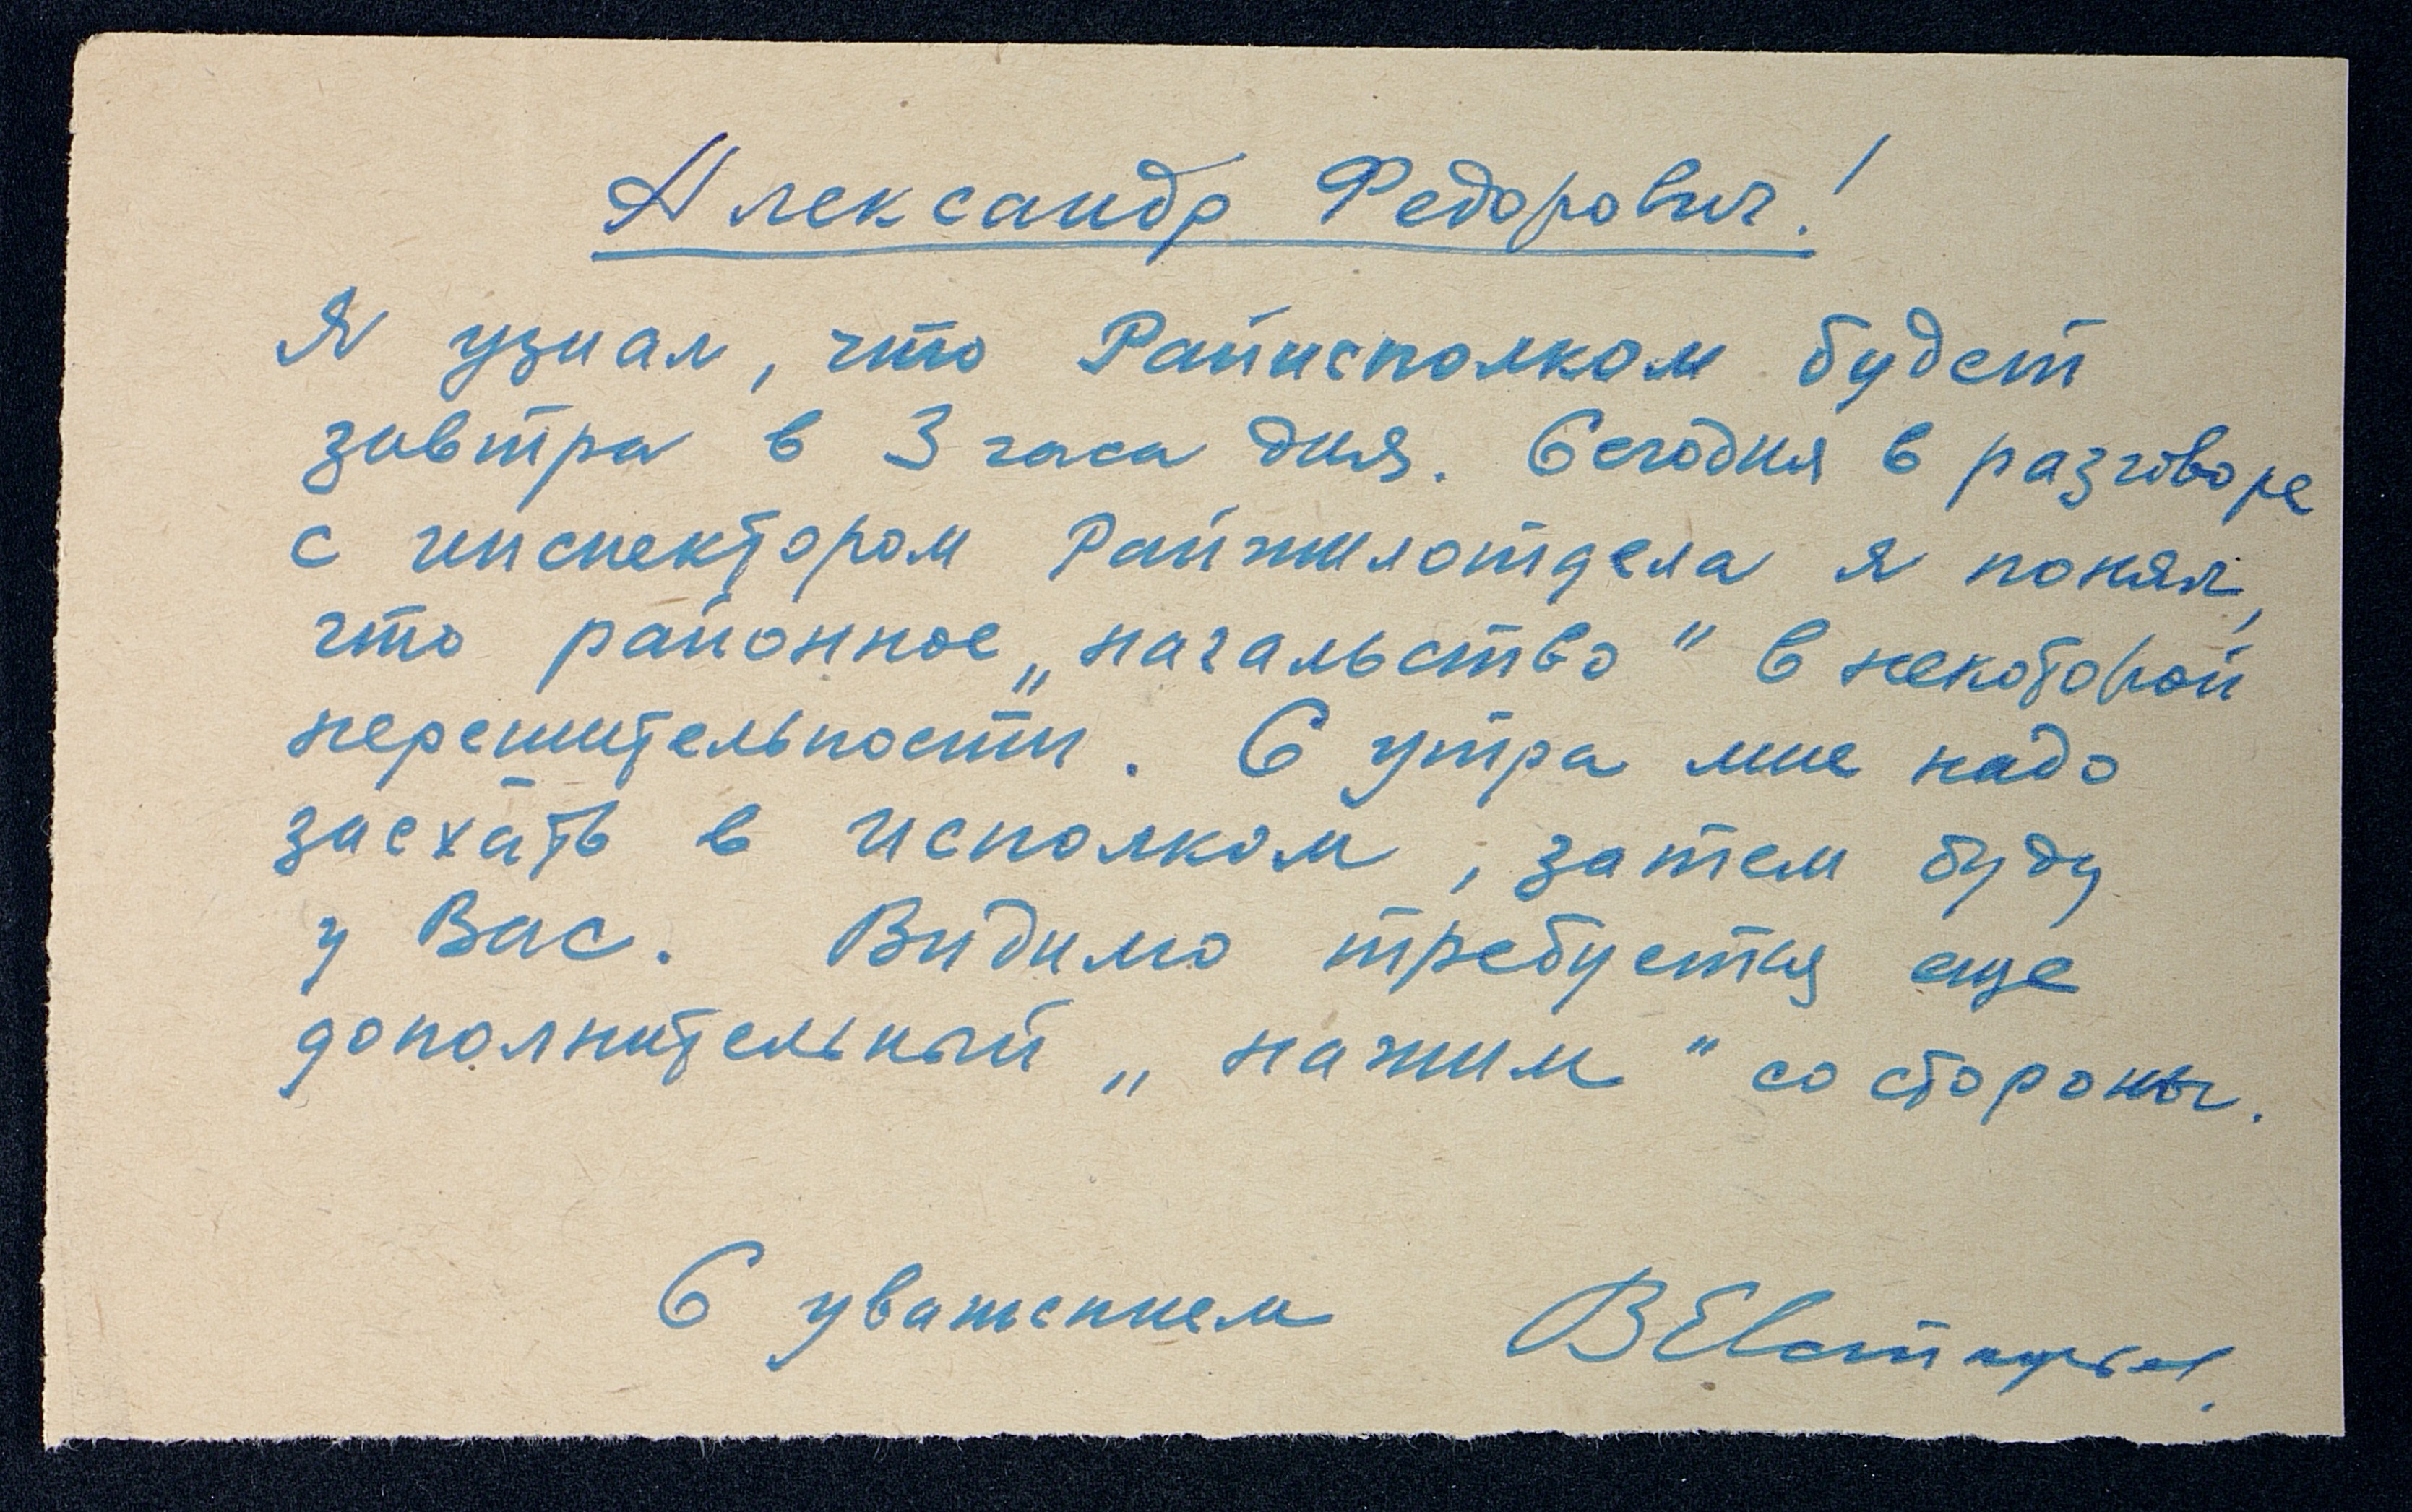 Александр Федорович!
Я узнал, что Райисполком будет
завтра в 3 часа дня. Сегодня в разговоре
с инспектором Райжилотдела я понял,
что районное „начальство" в некоторой
нерешительности. С утра мне надо
заехать в исполком, затем буду
у Вас. Видимо требуется еще
дополнительный „нажим" со стороны.
С уважением